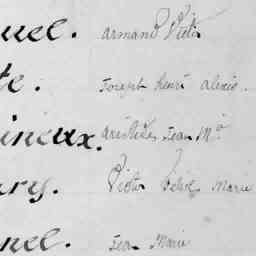 uel. armand Victor
te. Joseph henri alexis.
ineux. aristides Jean M.ie
ary. Victor Marie
nel. Jean Marie